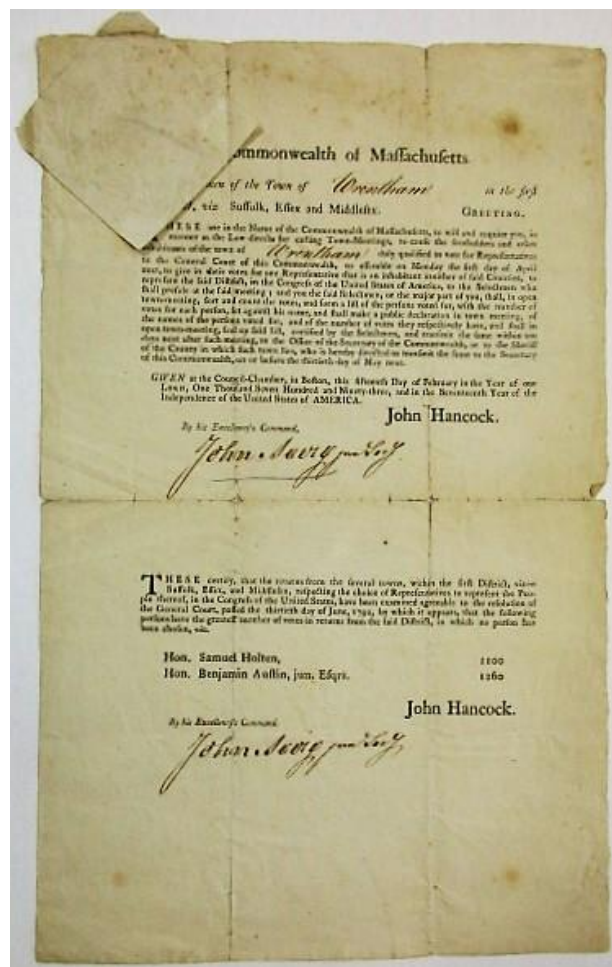 ommonwealth of Maſſachuſetts
men of the Town of Wrentham in the firſt
viz. Suffolk, Eſſex and Middleſex. GREETING.
HESE are in the Name of the Commonwealth of Maſſachuſetts, to will and require you, in
manner as the Law directs for calling Town-Meetings, to cauſe the freeholders and other
inhabitants of the town of Wrentham duly qualified to vote for Repreſentatives
to the General Court of this Commonwealth, to aſſemble on Monday the firſt day of April
next, to give in their votes for one Repreſentative that is an inhabitant of ſaid Counties, to
repreſent the ſaid Diſtrict, in the Congreſs of the United States of America, to the Selectmen who
ſhall preſide at the ſaid meeting; and you the ſaid Selectmen, or the major part of you, ſhall, in open
town-meeting, ſort and count the votes, and form a liſt of the perſons voted for, with the number of
votes for each perſon, ſet againſt his name, and ſhall make a public declaration in town meeting, of
the names of the perſons voted for, and of the number of votes they reſpectively have, and ſhall in
open town-meeting, ſeal up ſaid liſt, certified by the Selectmen, and tranſmit the ſame within
days next after ſuch meeting, to the Office of the Secretary of the Commonwealth, or to the Sheriff
of the County in which ſuch town lies, who is hereby directed to tranſmit the ſame to the Secretary
of this Commonwealth, on or before the thirtieth day of May next.
GIVEN at the Council-Chamber, in Boſton, this fifteenth Day of February in the Year of our
LORD, One Thouſand Seven Hundred and Ninety-three, and in the Seventeenth Year of the
Independence of the United States of AMERICA.
John Hancock.
By his Excellency's Command,
John Avery jun Secy
THESE certify, that the returns from the ſeveral towns, within the firſt Diſtrict, viz.
Suffolk, Eſſex, and Middleſex, reſpecting the choice of Repreſentatives to repreſent the Peo-
ple thereof, in the Congreſs of the United States, have been examined agreeable to the reſolution of
the General Court, paſſed the thirtieth day of June, 1792, by which it appears, that the following
perſons have the greateſt number of votes in returns from the ſaid Diſtrict, in which no perſon has
been choſen, viz.
Hon. Samuel Holten, 1100
Hon. Benjamin Auſtin, jun. Eſqrs. 1260
John Hancock.
By his Excellency's Command.
John Avery jun Secy